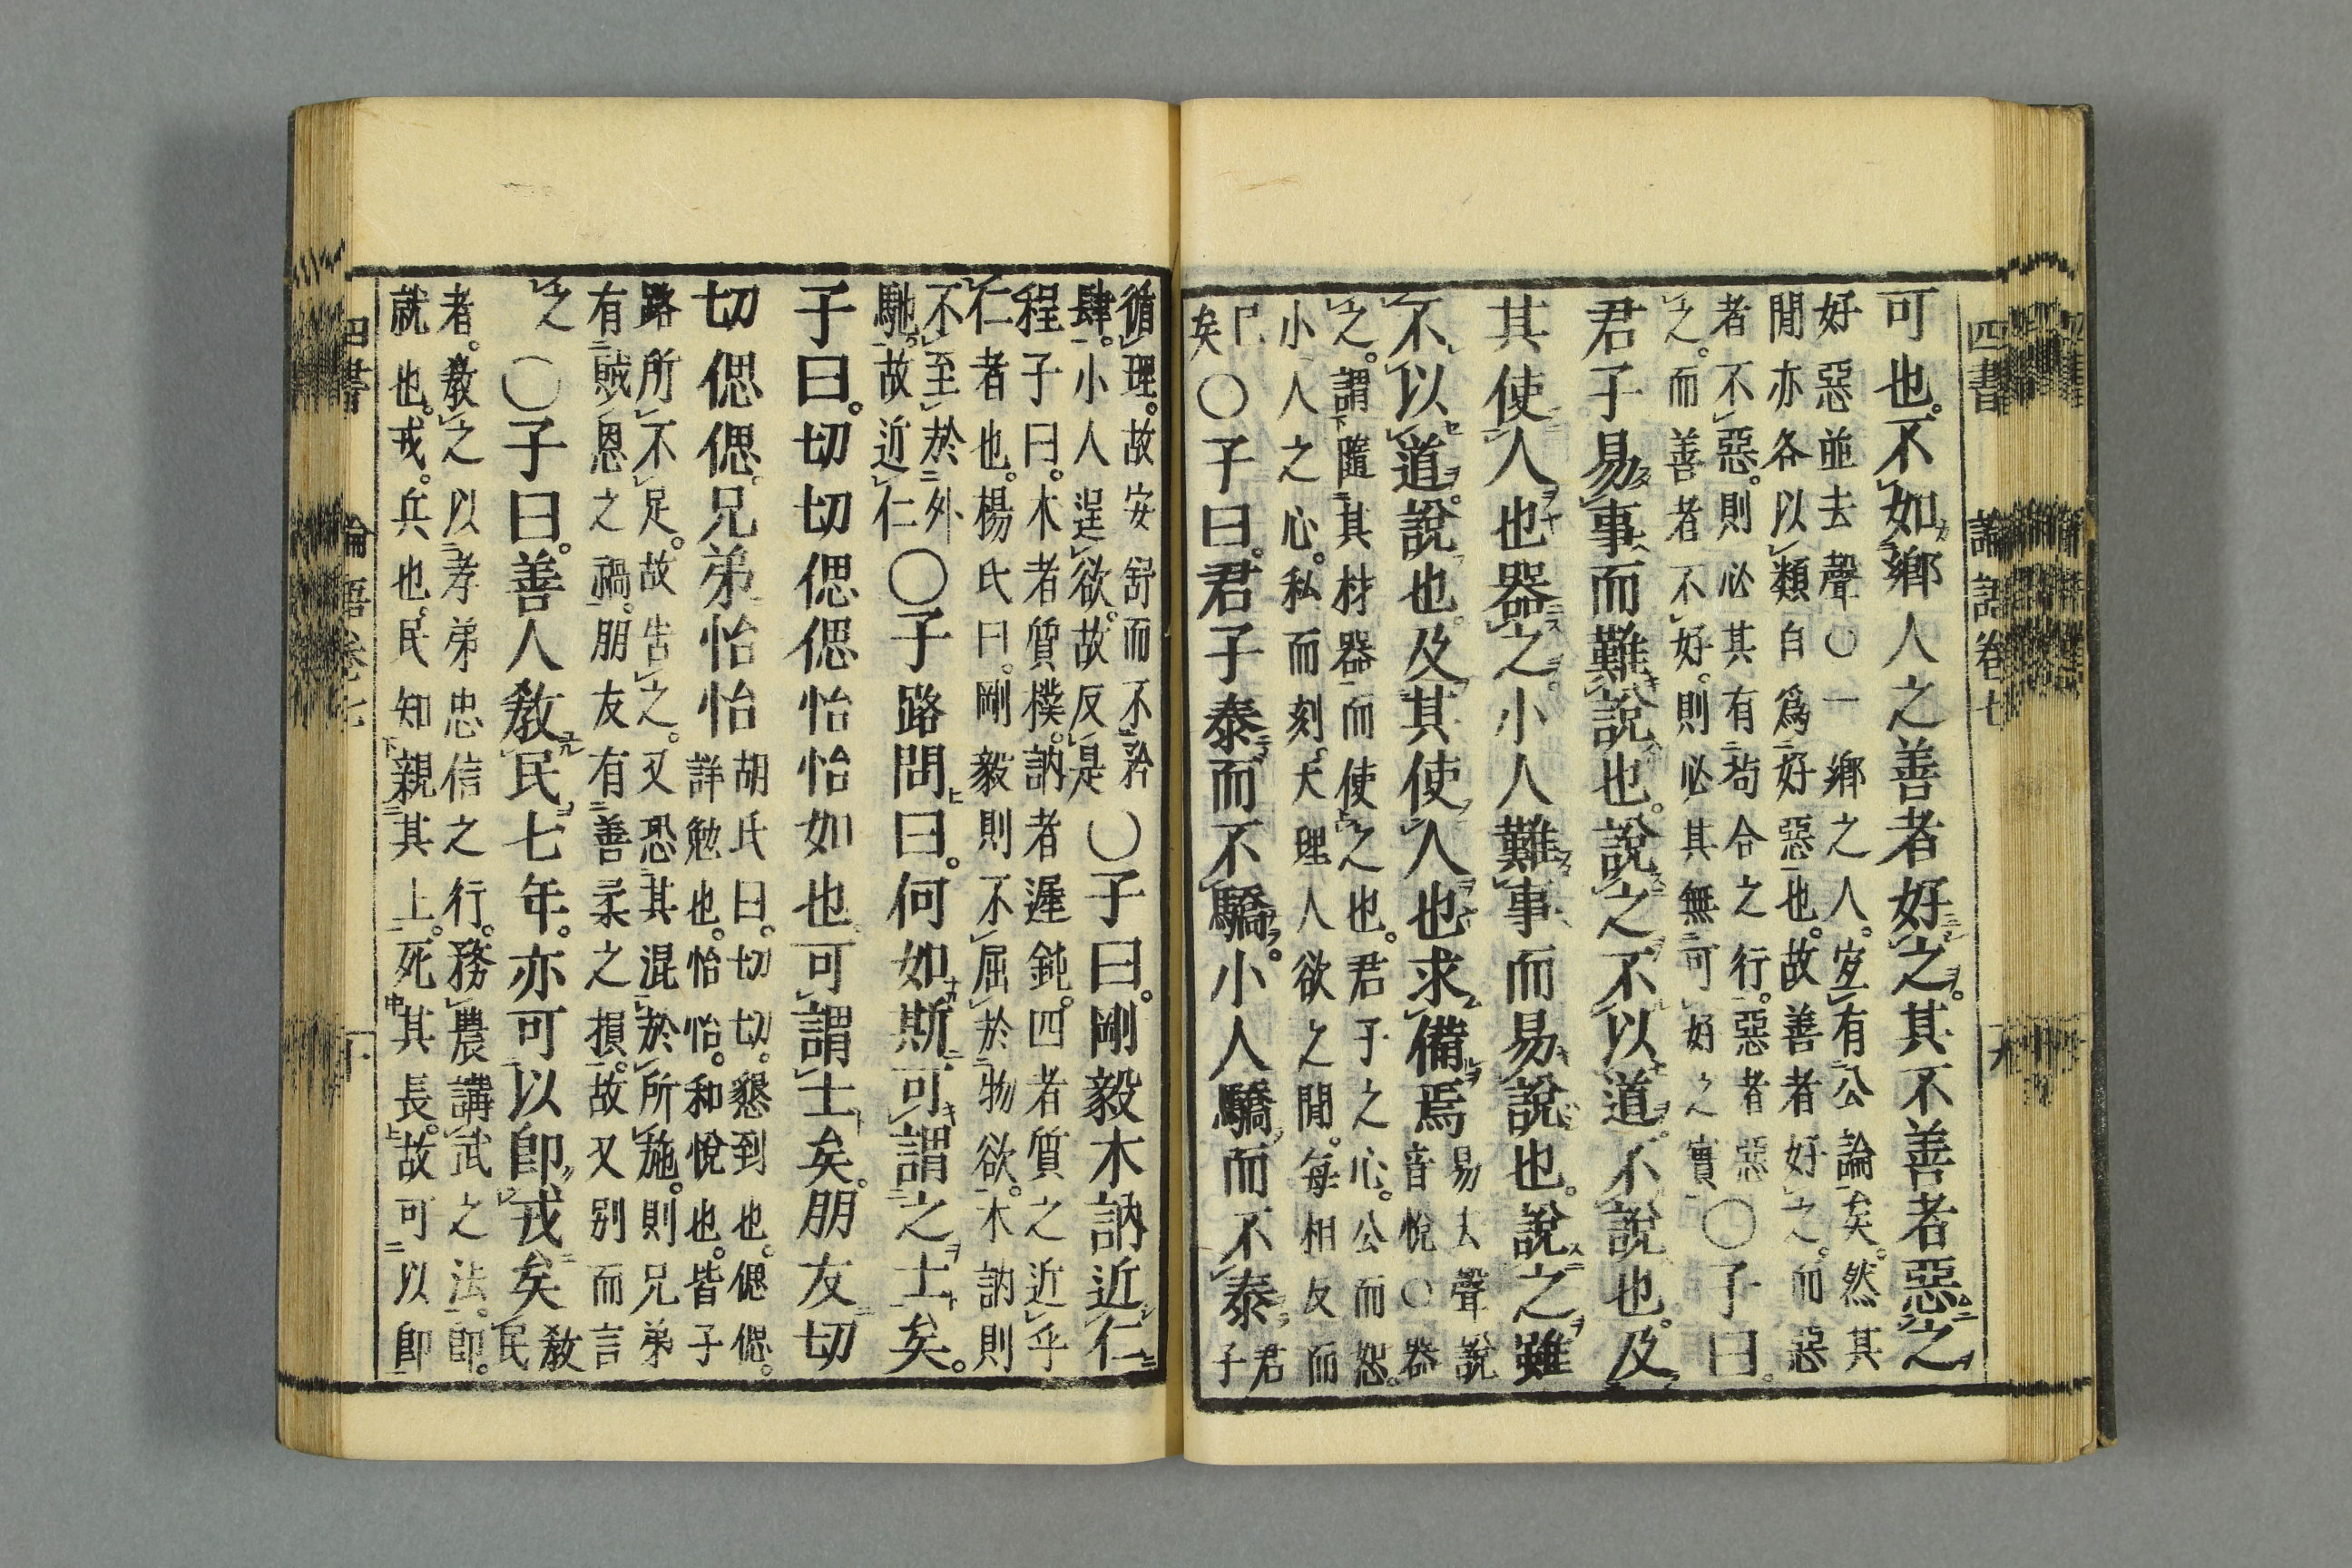 四書 論語卷七
可也。不如鄉人之善者好之。其不善者惡之
好惡並去聲○一鄉之人。宜有公論矣。然其
間亦各以類自爲好惡也。故善者好之。而惡
者不惡。則必其有苟合之行。惡者惡
之。而善者不好。則必其無可好之實
○子曰。
君子易事而難說也。說之不以道。不說也。及
其使人也器之。小人難事而易說也。說之雖
不以道。說也。及其使人也求備焉
易去聲說
音悅○器
之。謂隨其材器而使之也。君子之心。公而恕。
小人之心。私而刻。天理人欲之間。每相反而
已
矣
○子曰。君子泰而不驕。小人驕而不泰
君
子
循理。故安舒而不矜
肆。小人逞欲。故反是
○子曰。剛毅木訥近仁
程子曰。木者質樸。訥者遲鈍。四者質之近乎
仁者也。楊氏曰。剛毅則不屈於物欲。木訥則
不至於外
馳。故近仁
○子路問曰。何如斯可謂之士矣。
子曰。切切偲偲怡怡如也可謂士矣。朋友切
切偲偲。兄弟怡怡
胡氏曰。切切。懇到也。偲偲。
詳勉也。怡怡。和悅也。皆子
路所不足。故告之。又恐其混於所施。則兄弟
有賊恩之禍。朋友有善柔之損。故又別而言
之
○子曰。善人教民七年。亦可以卽戎矣
教
民
者。教之以孝弟忠信之行。務農講武之法。卽。
就也。戎。兵也。民知親其上。死其長。故可以卽
四書 論語卷七